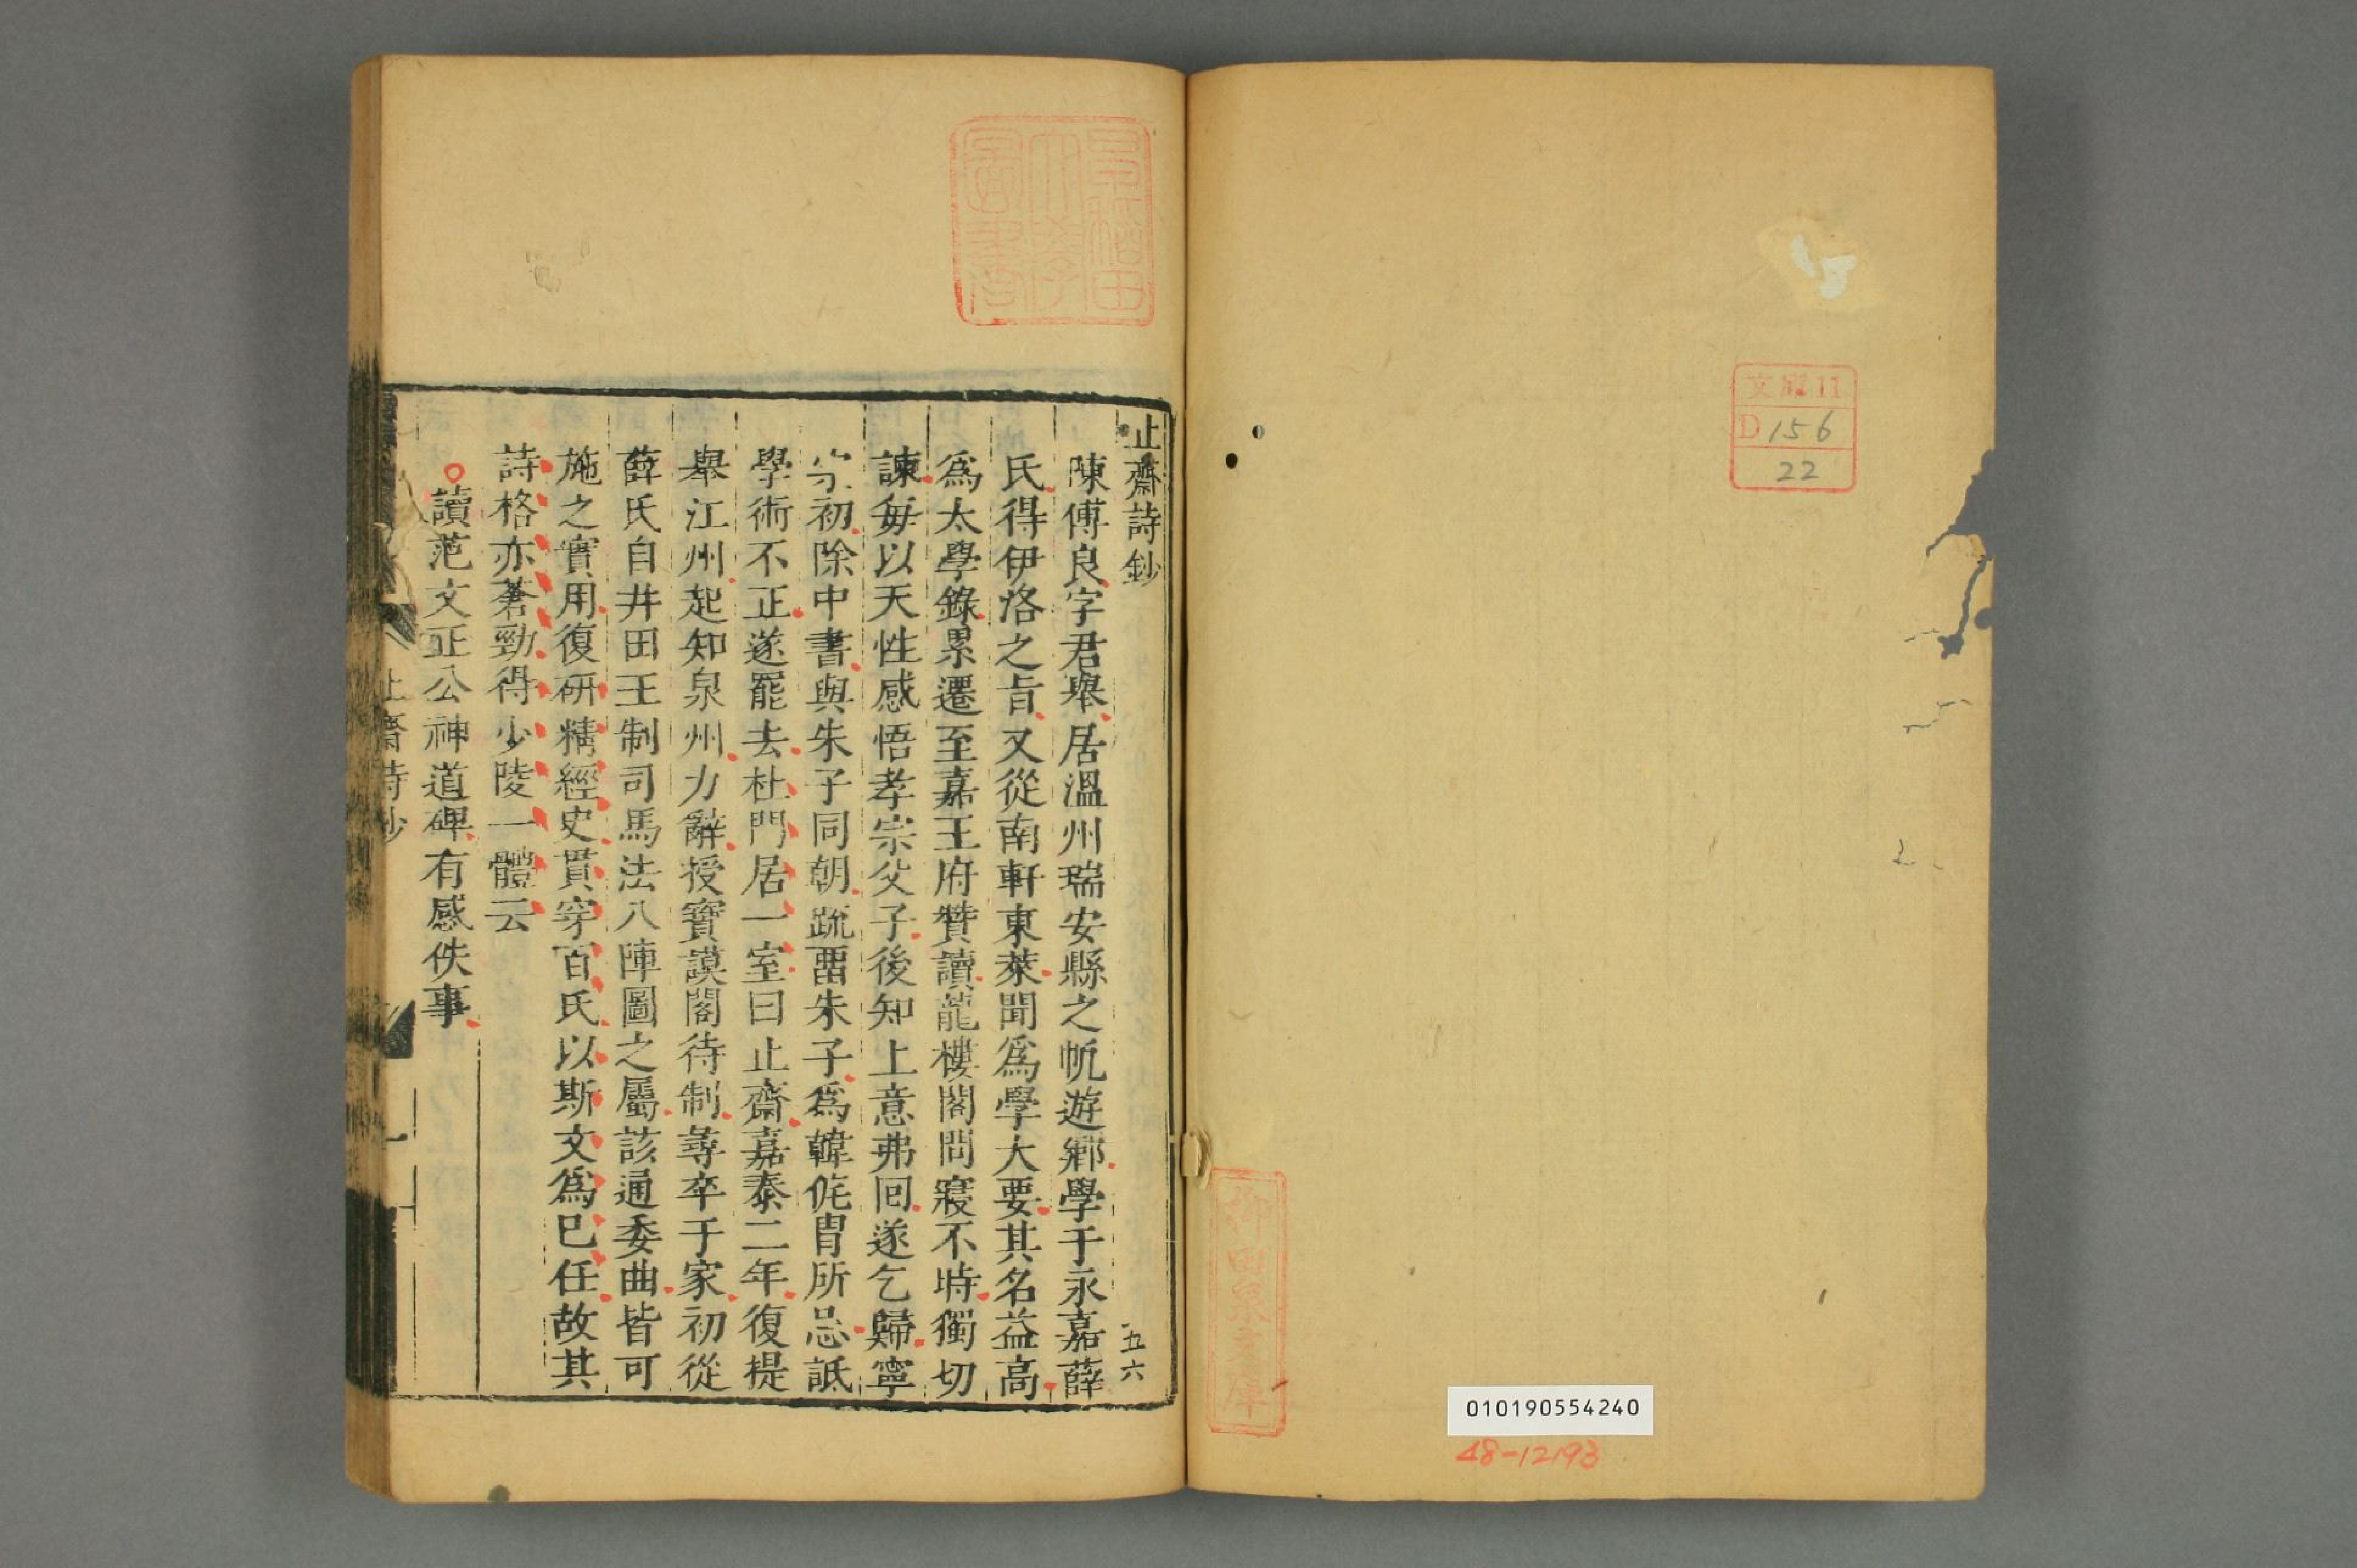 文庫11
D156
22
010190554240
48-12193
柳田泉文庫
早稲田
大學
圖書
止齋詩鈔
五六
陳傅良字君舉居溫州瑞安縣之帆遊鄉學于永嘉薛
氏得伊洛之旨又從南軒東萊聞爲學大要其名益高
爲太學錄累遷至嘉王府贊讀龍樓閣問寢不時獨切
諫每以天性感悟孝宗父子後知上意弗回遂乞歸寧
宗初除中書與朱子同朝疏畱朱子爲韓侂胄所忌詆
學術不正遂罷去杜門居一室曰止齋嘉泰二年復提
舉江州起知泉州力辭授寶謨閣待制尋卒于家初從
薛氏自井田王制司馬法八陣圖之屬該通委曲皆可
施之實用復研精經史貫穿百氏以斯文爲已任故其
詩格亦蒼勁得少陵一體云
讀范文正公神道碑有感佚事
止齋詩鈔
一